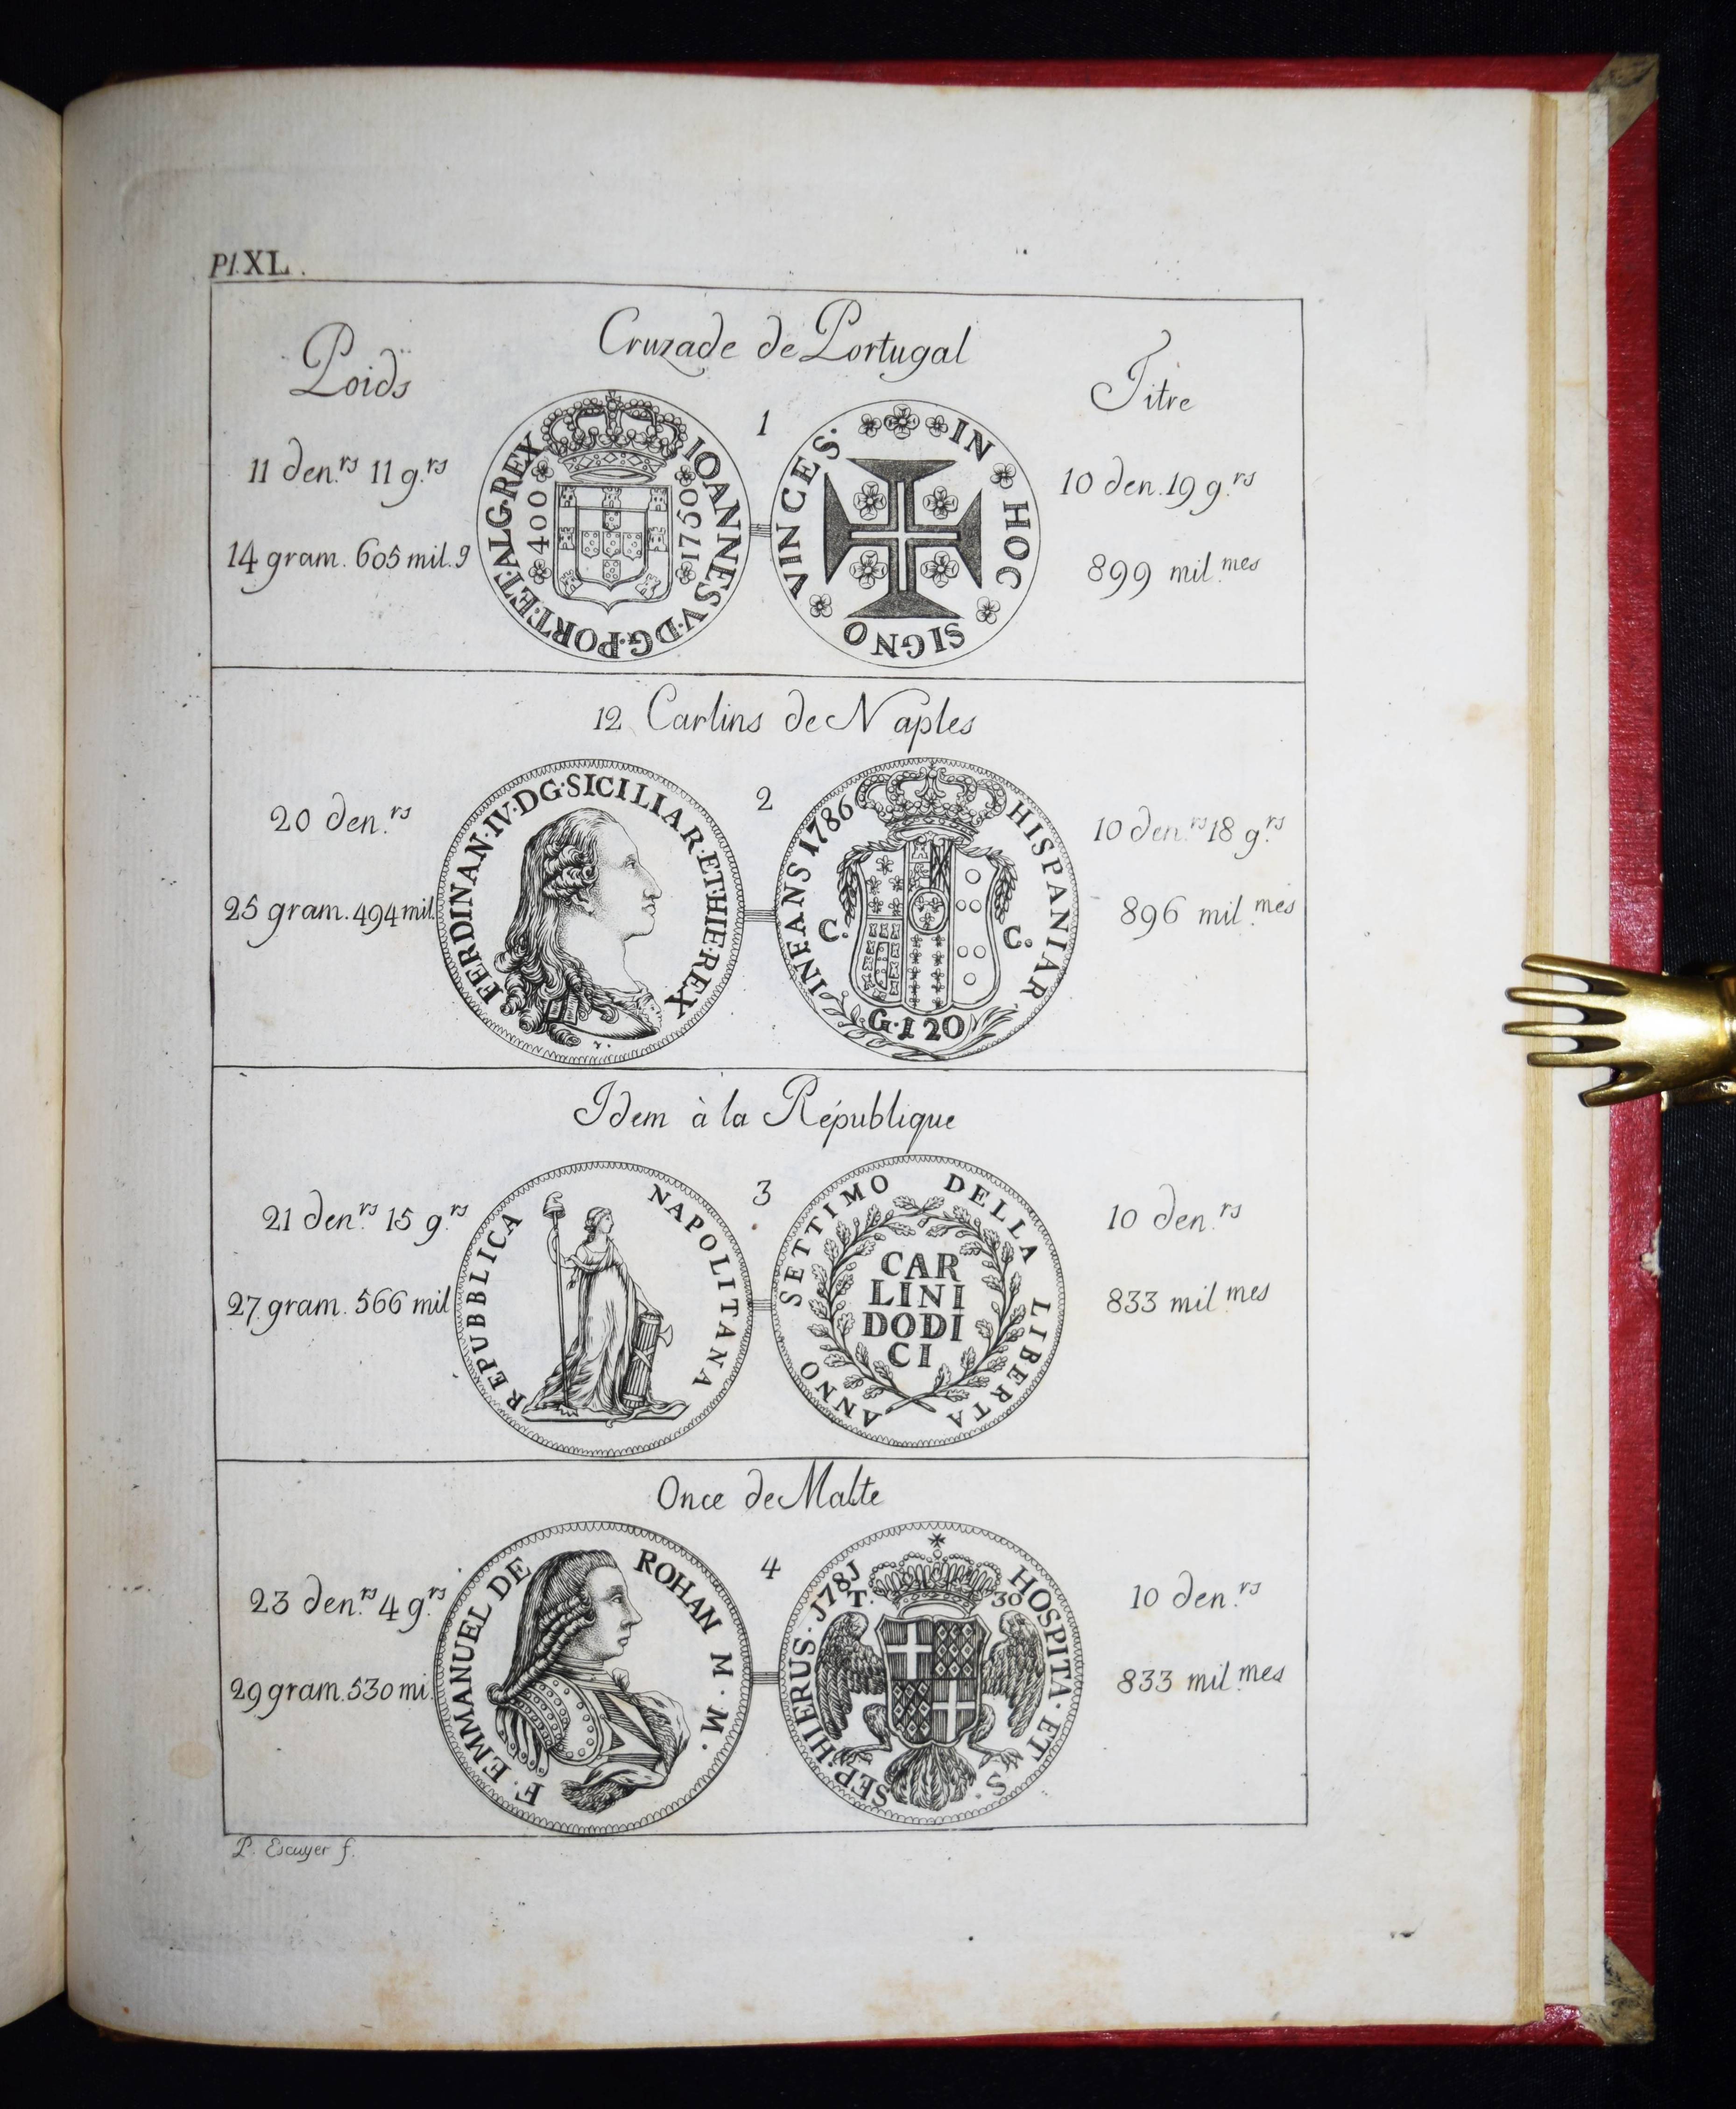 Pl.XL.
Cruzade de Portugal
Poids
Titre
1
11 den.rs 11 g.rs
14 gram. 605 mil.g
IOANNES·V·D·G·PORT·ET·ALG·REX
400
1750
IN HOC SIGNO VINCES·
10 den.19 g.rs
899 mil.mes
12 Carlins de Naples
2
20 den.rs
25 gram.494 mil.
FERDINAN·IV·D·G·SICILIAR·ET·HIE·REX
HISPANIAR
INFANS 1786
C.
C.
G·120
10 den.rs 18 g.rs
896 mil.mes
Idem à la République
3
21 den.rs 15 g.rs
27 gram. 566 mil
REPUBBLICA NAPOLITANA
ANNO SETTIMO DELLA LIBERTA
CAR
LINI
DODI
CI
10 den.rs
833 mil.mes
Once de Malte
4
23 den.rs 4 g.rs
29 gram.530 mi.
F. EMMANUEL DE ROHAN M·M·
HOSPITA·ET·S·
SEP·HIERUS·1781
T.
30
10 den.rs
833 mil.mes
P. Escuyer f.